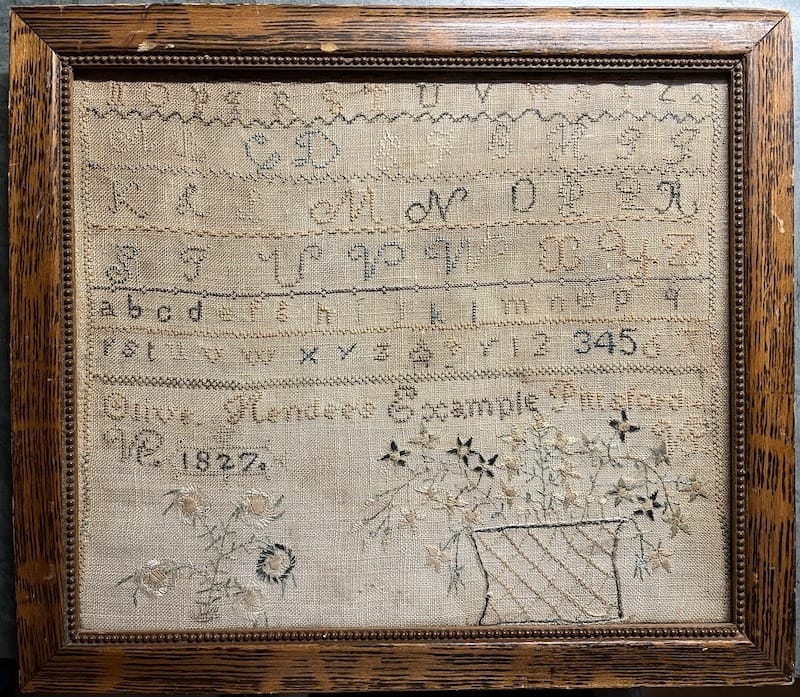 N O P Q R S T U V W X Y Z
C D E F G H I J
K L M N O P Q R
S T U V W X Y Z
a b c d e f g h i j k l m n o p q
r s t u v w x y z & 1 2 3 4 5 6
Olive Hendees Example Pittsford
Vt 1827.